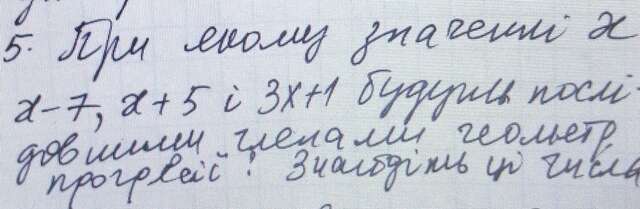 5. При якому значенні x
x-7, x+5 і 3x+1 будуть послі-
довними членами геометр.
прогресії? Знайдіть ці числа